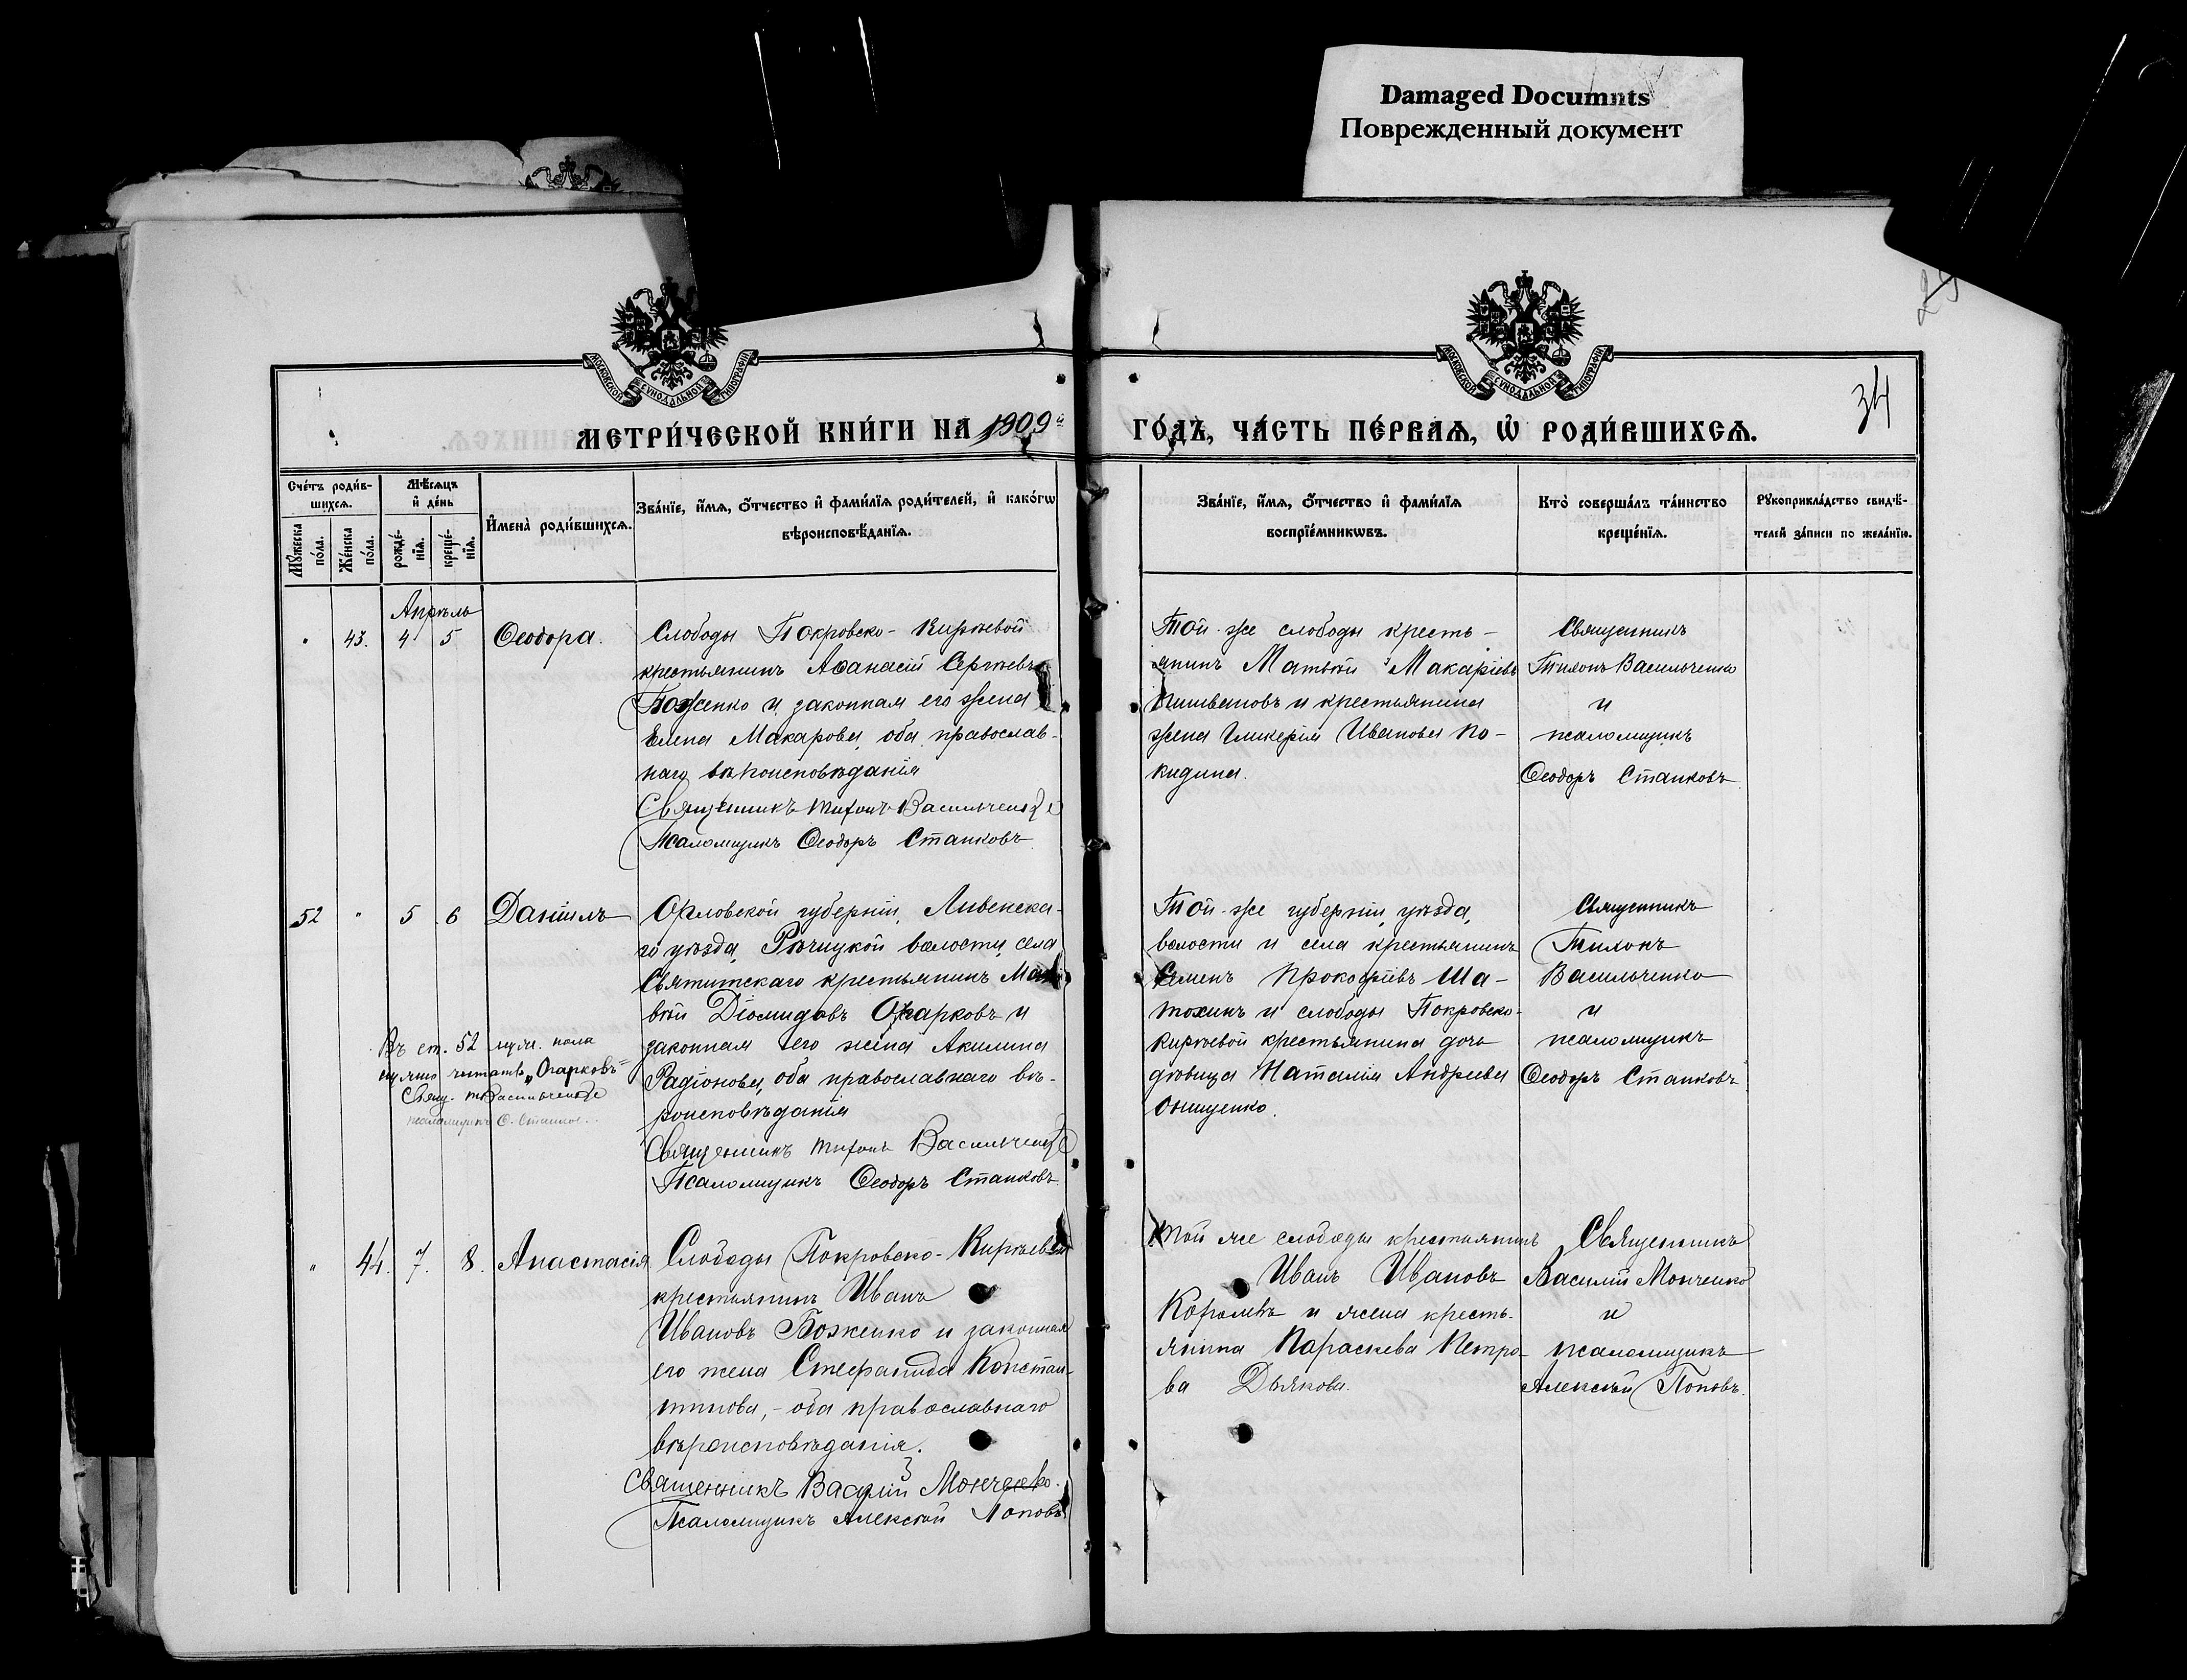 Damaged Documnts
Поврежденный документ
29
34
МОСКОВСКОЙ СѴНОДАЛЬНОЙ ТИПОГРАФІИ
МОСКОВСКОЙ СѴНОДАЛЬНОЙ ТИПОГРАФІИ
МЕТРИ́ЧЕСКОЙ КНИ́ГИ НА 1909й ГО́ДЪ, ЧА́СТЬ ПЕ́РВАѦ, Ѡ҆ РОДИ́ВШИХСѦ.
Сче́тъ роди́в-
шихсѧ.
Мꙋ́жеска по́ла.
Же́нска по́ла.
Мѣ́сѧцъ
и҆ де́нь
рожде́-
нїѧ.
креще́-
нїѧ.
И҆мена̀ роди́вшихсѧ.
Зва́нїе, и҆́мѧ, ѻ҆́тчество и҆ фами́лїѧ роди́телей, и҆ како́гѡ
вѣроисповѣ́данїѧ.
Зва́нїе, и҆́мѧ, ѻ҆́тчество и҆ фами́лїѧ
воспрїе́мникѡвъ.
Кто̀ соверша́лъ та́инство
креще́нїѧ.
Рꙋкоприкла́дство свидѣ́-
телей за́писи по жела́нїю.
Апрѣль
" 43. 4 5 Ѳеодора.
Слободы Покровско-Кирѣевой
крестьянинъ Аѳанасій Сергѣевъ
Боженко и законная его жена
Елена Макарова, оба православ-
наго вѣроисповѣданія
Священникъ Тихонъ Васильченко
Псаломщикъ Ѳеодоръ Станковъ
Той-же слободы кресть-
янинъ Матвѣй Макаріевъ
и крестьянина
жена Гликерія Иванова По-
кидина.
Священникъ
Тихонъ Васильченко
и
псаломщикъ
Ѳеодоръ Станковъ
52 " 5 6 Даніилъ
Орловской губерніи, Ливенска-
го уѣзда, Рѣчицкой волости, села
Святитскаго крестьянинъ Мат-
вѣй Діомидовъ Огарковъ и
законная его жена Акилина
Радіонова, оба православнаго вѣ-
роисповѣданія
Священникъ Тихонъ Васильченко
Псаломщикъ Ѳеодоръ Станковъ
Въ ст. 52 муж. пола
нужно читать „Огарковъ"
Свящ. Т. Васильченко
псаломщикъ Ѳ. Станков..
Той-же губерніи, уѣзда,
волости и села крестьянинъ
Семенъ Прокофіевъ Ша-
тохинъ и слободы Покровско-
Кирѣевой крестьянина дочь
дѣвица Наталія Андреева
Онищенко.
Священникъ
Тихонъ
Васильченко
и
псаломщикъ
Ѳеодоръ Станковъ
" 44. 7. 8. Анастасія
Слободы Покровско-Кирѣевой
крестьянинъ Иванъ
Ивановъ Боженко и законная
его жена Стефанида Констан-
тинова, - оба православнаго
вѣроисповѣданія.
Священникъ Василій Мончевко.
Псаломщикъ Алексѣй Поповъ
Той же слободы крестьянинъ
Иванъ Ивановъ
Королевъ и жена кресть-
янина Параскева Петро-
ва Дьякова.
Священникъ
Василій Мончевко
и
псаломщикъ
Алексѣй Поповъ.